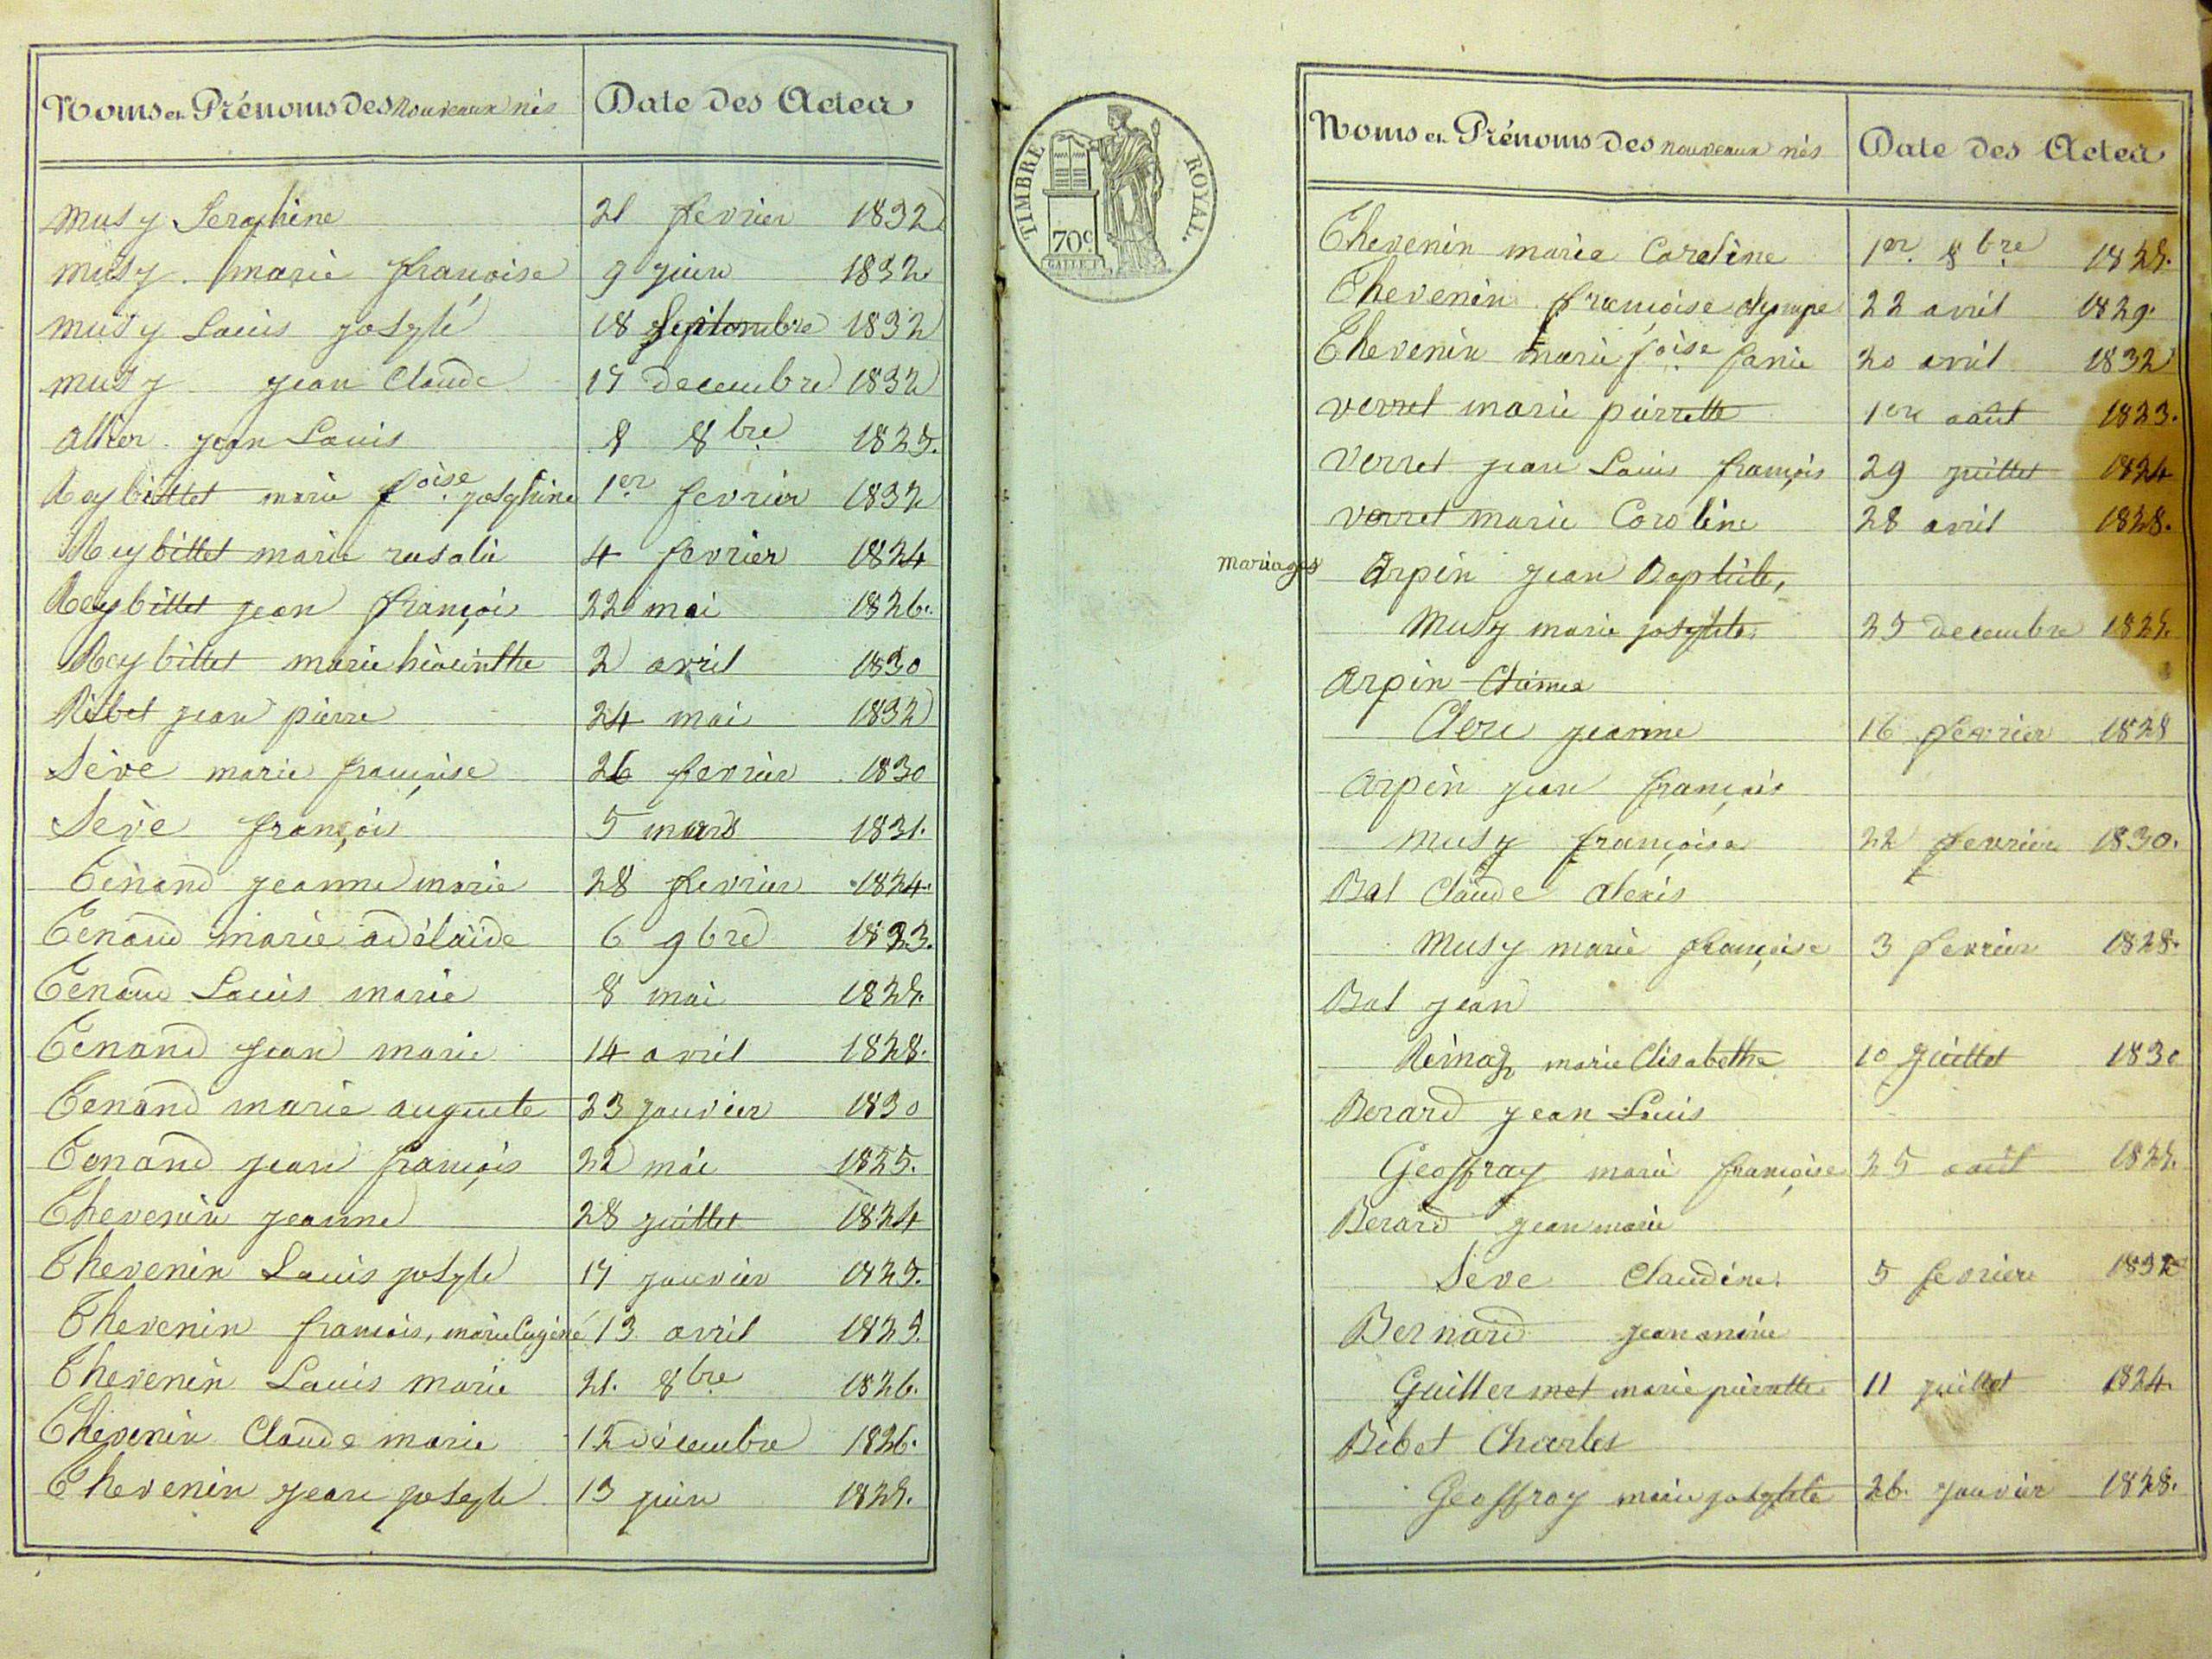 Noms et Prénoms des nouveaux nés Date des Actes
musy Seraphine 21 fevrier 1832
musy marie françoise 9 juin 1832
musy Louis josephe 18 Septembre 1832
musy jean Claude 17 decembre 1832
jean Louis 8 8bre 1825.
Reybillet marie foise josephine 1er fevrier 1832
Reybillet marie rosalie 4 fevrier 1824
Reybillet jean françois 22 mai 1826.
Reybillet marie hiacinthe 2 avril 1830
Ribet jean pierre 24 mai 1832
Sève marie françoise 26 fevrier 1830
Sève françois 5 mars 1831.
Tenand jeanne marie 28 fevrier 1824.
Tenand marie adélaïde 6 9bre 1823.
Tenand Louis marie 8 mai
Tenand jean marie 14 avril 1828.
Tenand marie auguste 23 janvier 1830
Tenand jean françois 22 mai 1825.
Thevenin jeanne 28 juillet 1824
Thevenin Louis josephe 17 janvier 1825.
Thevenin françois, marie Eugéne 13 avril
Thevenin Louis marie 21. 8bre 1826.
Thevenin Claude marie 12 décembre 1826.
Thevenin jean josephe 13 juin
TIMBRE ROYAL.
70c
Noms et Prénoms des nouveaux nés Date des Actes
Thevenin marie Caroline 1er. 8bre
Thevenin françoise olympe 22 avril 1829.
Thevenin marie foise fanie 20 avril 1832
verret marie pierrette 1er août 1823.
Verret jean Louis françois 29 juillet 1824
verret marie Caroline 28 avril 1828.
mariages Arpin jean Baptiste,
Musy marie josephte 25 decembre
Arpin
Clerc jeanne 16 fevrier 1828
Arpin jean françois
musy françoise 22 fevrier 1830.
Bal Claude alexis
Musy marie françoise 3 fevrier 1828.
Bal jean
marie Elisabethe 10 juillet 1830
Berard jean Louis
Geoffray marie françoise 25 août
Berard jean marie
Seve Claudine 5 fevrier 1832
Bernard jean marie
Guillermet marie pierrette 11 juillet 1824.
Bibet Charles
Geoffray marie josephte 26. janvier 1828.